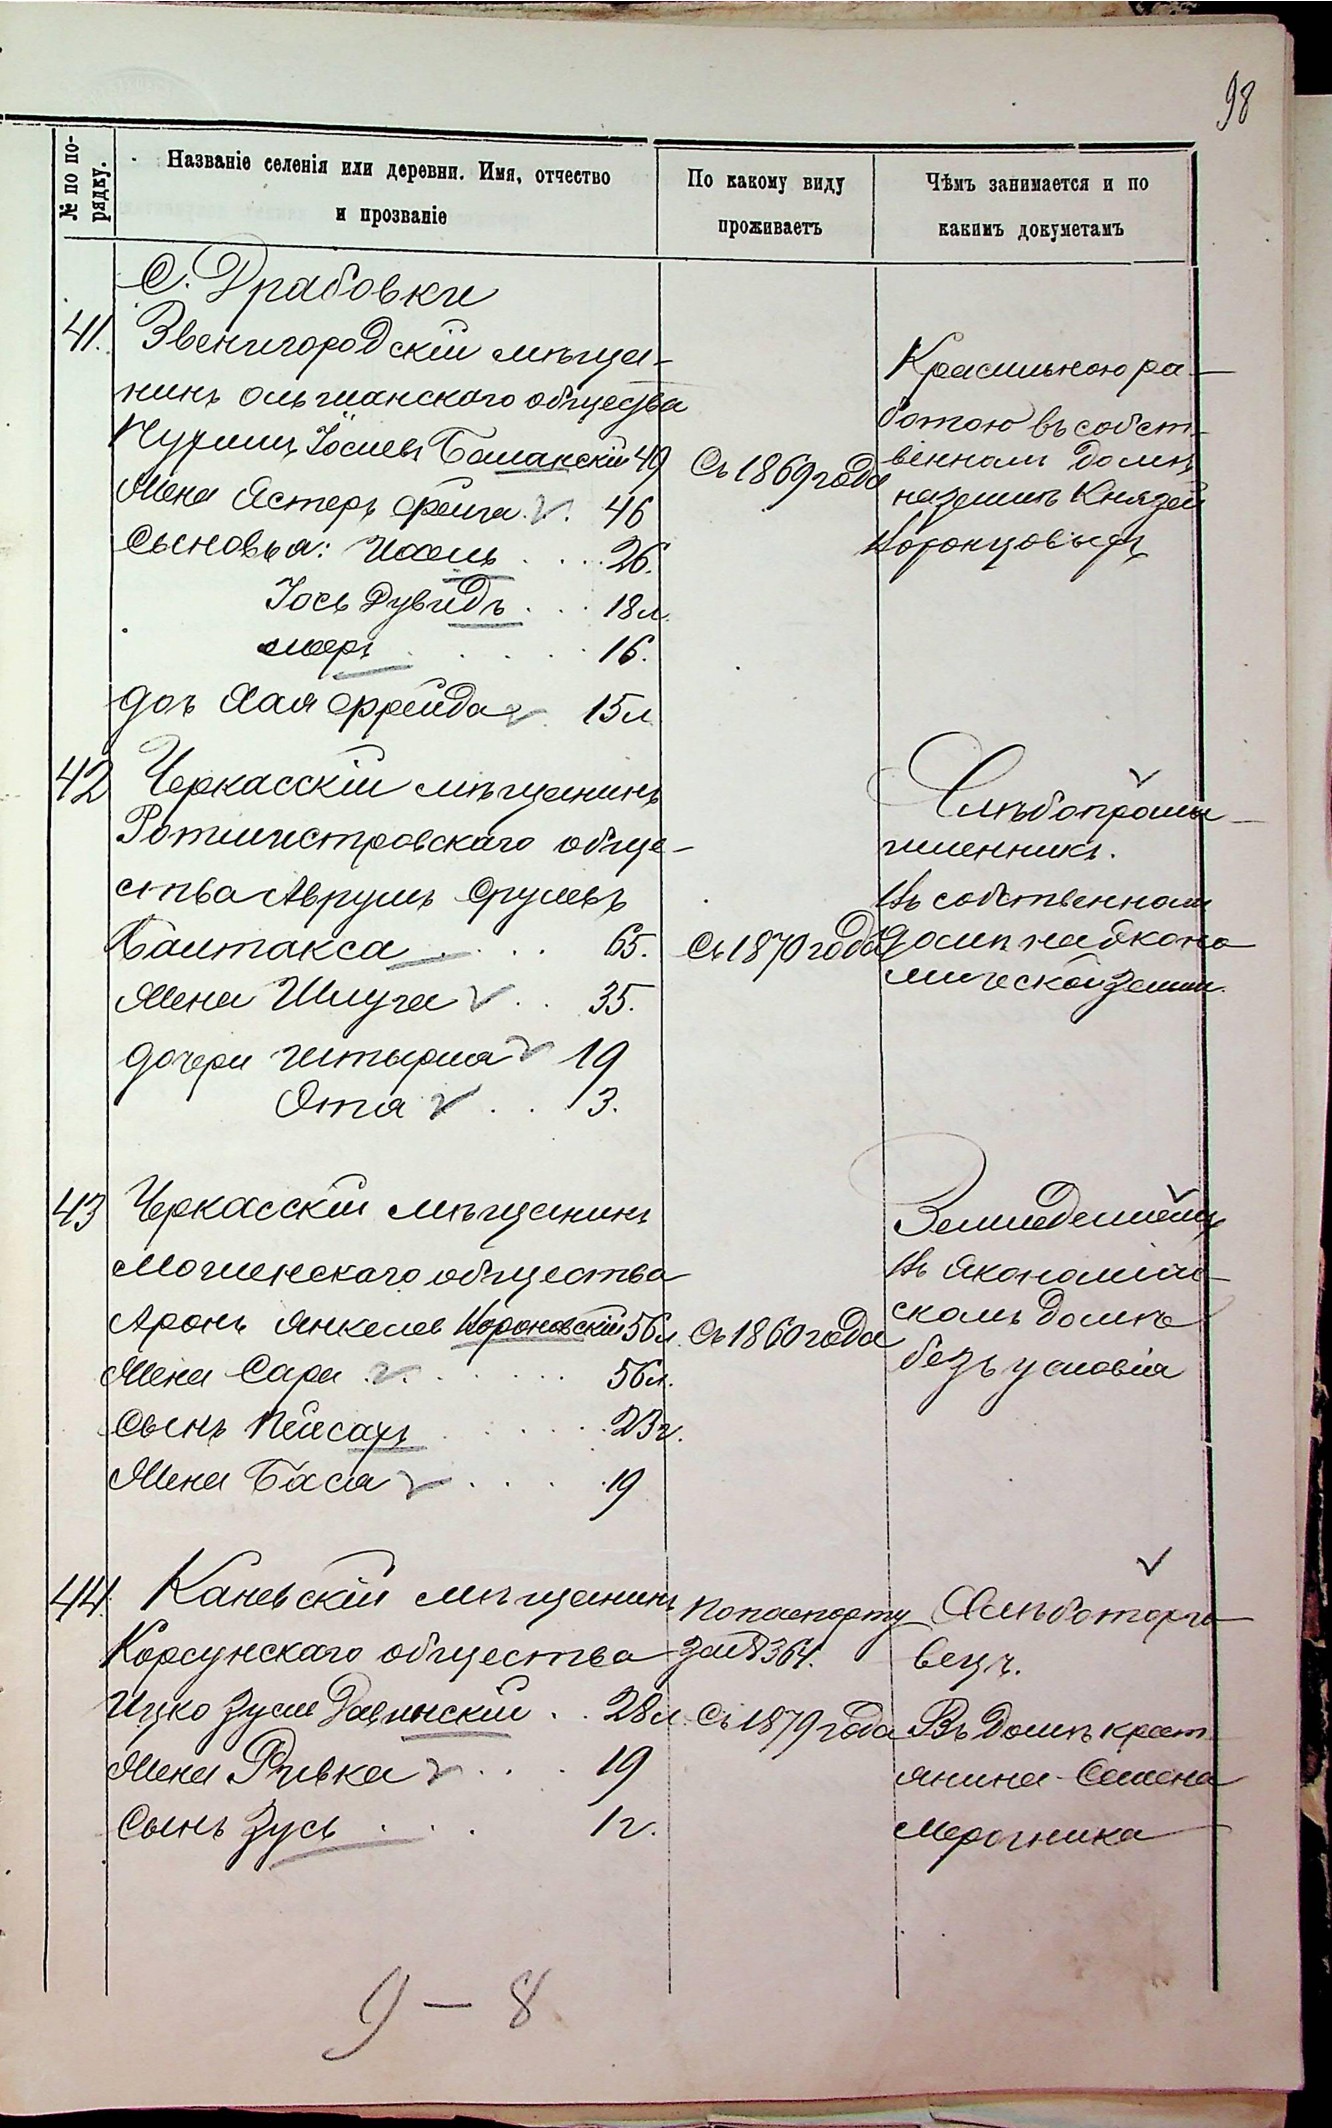 98
№ по по-
рядку.
Названіе селенія или деревни. Имя, отчество
и прозваніе
По какому виду
проживаетъ
Чѣмъ занимается и по
какимъ докуметамъ
С. Драбовки
41. Звенигородскій мѣща-
нинъ Ольшанскаго общества
Іосіевъ 49
Жена Эстеръ Фейга 46
Сыновья: Иоель 26.
Іось Дувидъ 18 л.
Мееръ 16.
дочь Хая Фрейда 15 л
Съ 1869 года
Красильною ра-
ботою въ собст-
венномъ домѣ
на землѣ Князей
Воронцовыхъ
42 Черкасскій мѣщанинъ
Ротмистровскаго обще-
ства Аврумъ Срулевъ
Балтакса 65.
Жена 35.
дочери 19
Эта 3.
Съ 1870 года
Хлѣбопромы-
шленникъ.
Въ собственномъ
домѣ на эконо
мической земли.
43 Черкасскій мѣщанинъ
Мошенскаго общества
Аронъ Янкелевъ Вороновскій 56 л.
Жена Сара 56 л.
Сынъ Пейсахъ 23 г.
Жена Бася 19
Съ 1860 года
Земледелецъ
Въ Экономіче-
скомъ домѣ
безъ условія
44. Каневскій мѣщанинъ
Корсунскаго общества
Ицко Зусе 28 л.
Жена Ривка 19
Сынъ Зусь 1 г.
По паспорту
за № 364.
Съ 1879 года
Хлѣботорго-
вецъ.
Въ домѣ крест-
янина Семена
Мерочника
9 — 8